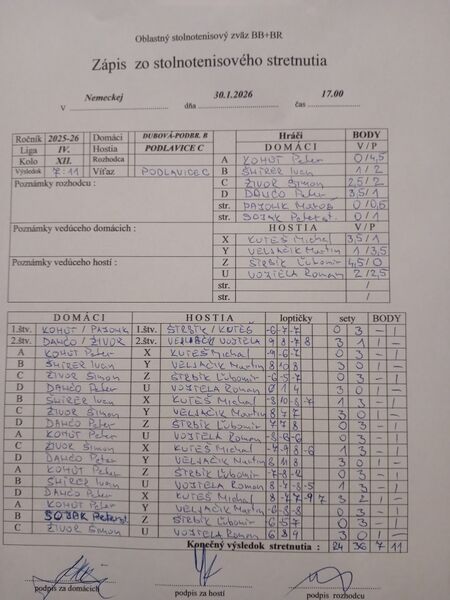 Oblastný stolnotenisový zväz BB+BR
Zápis zo stolnotenisového stretnutia
V Nemeckej dňa 30.1.2026 čas 17.00
Ročník 2025-26 Domáci DUBOVÁ-PODBR. B
Liga IV. Hostia PODLAVICE C
Kolo XII. Rozhodca
Výsledok 7:11 Víťaz PODLAVICE C
Poznámky rozhodcu :
Poznámky vedúceho domácich :
Poznámky vedúceho hostí :
Hráči BODY
DOMÁCI V/P
A KOHÚT Peter 0/4,5
B ŠHIRER Ivan 1/2
C ŽIVOR Šimon 2,5/2
D DANČO Peter 3,5/1
str. PAJONK 0/0,5
str. SOJAK Peter st. 0/1
HOSTIA V/P
X KUTEŠ Michal 3,5/1
Y VELJAČIK Martin 1/3,5
Z ŠTRBÍK Ľubomír 4,5/0
U VOJTELA Roman 2/2,5
str. /
str. /
DOMÁCI HOSTIA loptičky sety BODY
1.štv. KOHÚT / PAJONK 1.štv. ŠTRBÍK / KUTEŠ -6-7-7 0 3 - 1
2.štv. DANČO / ŽIVOR 2.štv. VELJAČIK VOJTELA 9 8 -7 8 3 1 1 -
A KOHÚT Peter X KUTEŠ Michal -9-6-7 0 3 - 1
B ŠHIRER Ivan Y VELJAČIK Martin 8 10 8 3 0 1 -
C ŽIVOR Šimon Z ŠTRBÍK Ľubomír -6-5-7 0 3 - 1
D DANČO Peter U VOJTELA Roman 3 0 1 -
B ŠHIRER Ivan X KUTEŠ Michal 1 3 - 1
C ŽIVOR Šimon Y VELJAČIK Martin 8 7 7 3 0 1 -
D DANČO Peter Z ŠTRBÍK Ľubomír 0 3 - 1
A KOHÚT Peter U VOJTELA Roman -8-8-6 0 3 - 1
C ŽIVOR Šimon X KUTEŠ Michal 1 3 - 1
D DANČO Peter Y VELJAČIK Martin 8 11 8 3 0 1 -
A KOHÚT Peter Z ŠTRBÍK Ľubomír 0 3 - 1
B ŠHIRER Ivan U VOJTELA Roman 1 3 - 1
D DANČO Peter X KUTEŠ Michal 3 2 1 -
A KOHÚT Peter Y VELJAČIK Martin -6-8-8 0 3 - 1
B SOJAK Peter st. Z ŠTRBÍK Ľubomír 0 3 - 1
C ŽIVOR Šimon U VOJTELA Roman 6 8 9 3 0 1 -
Konečný výsledok stretnutia : 24 36 7 11
podpis za domácich podpis za hostí podpis rozhodcu